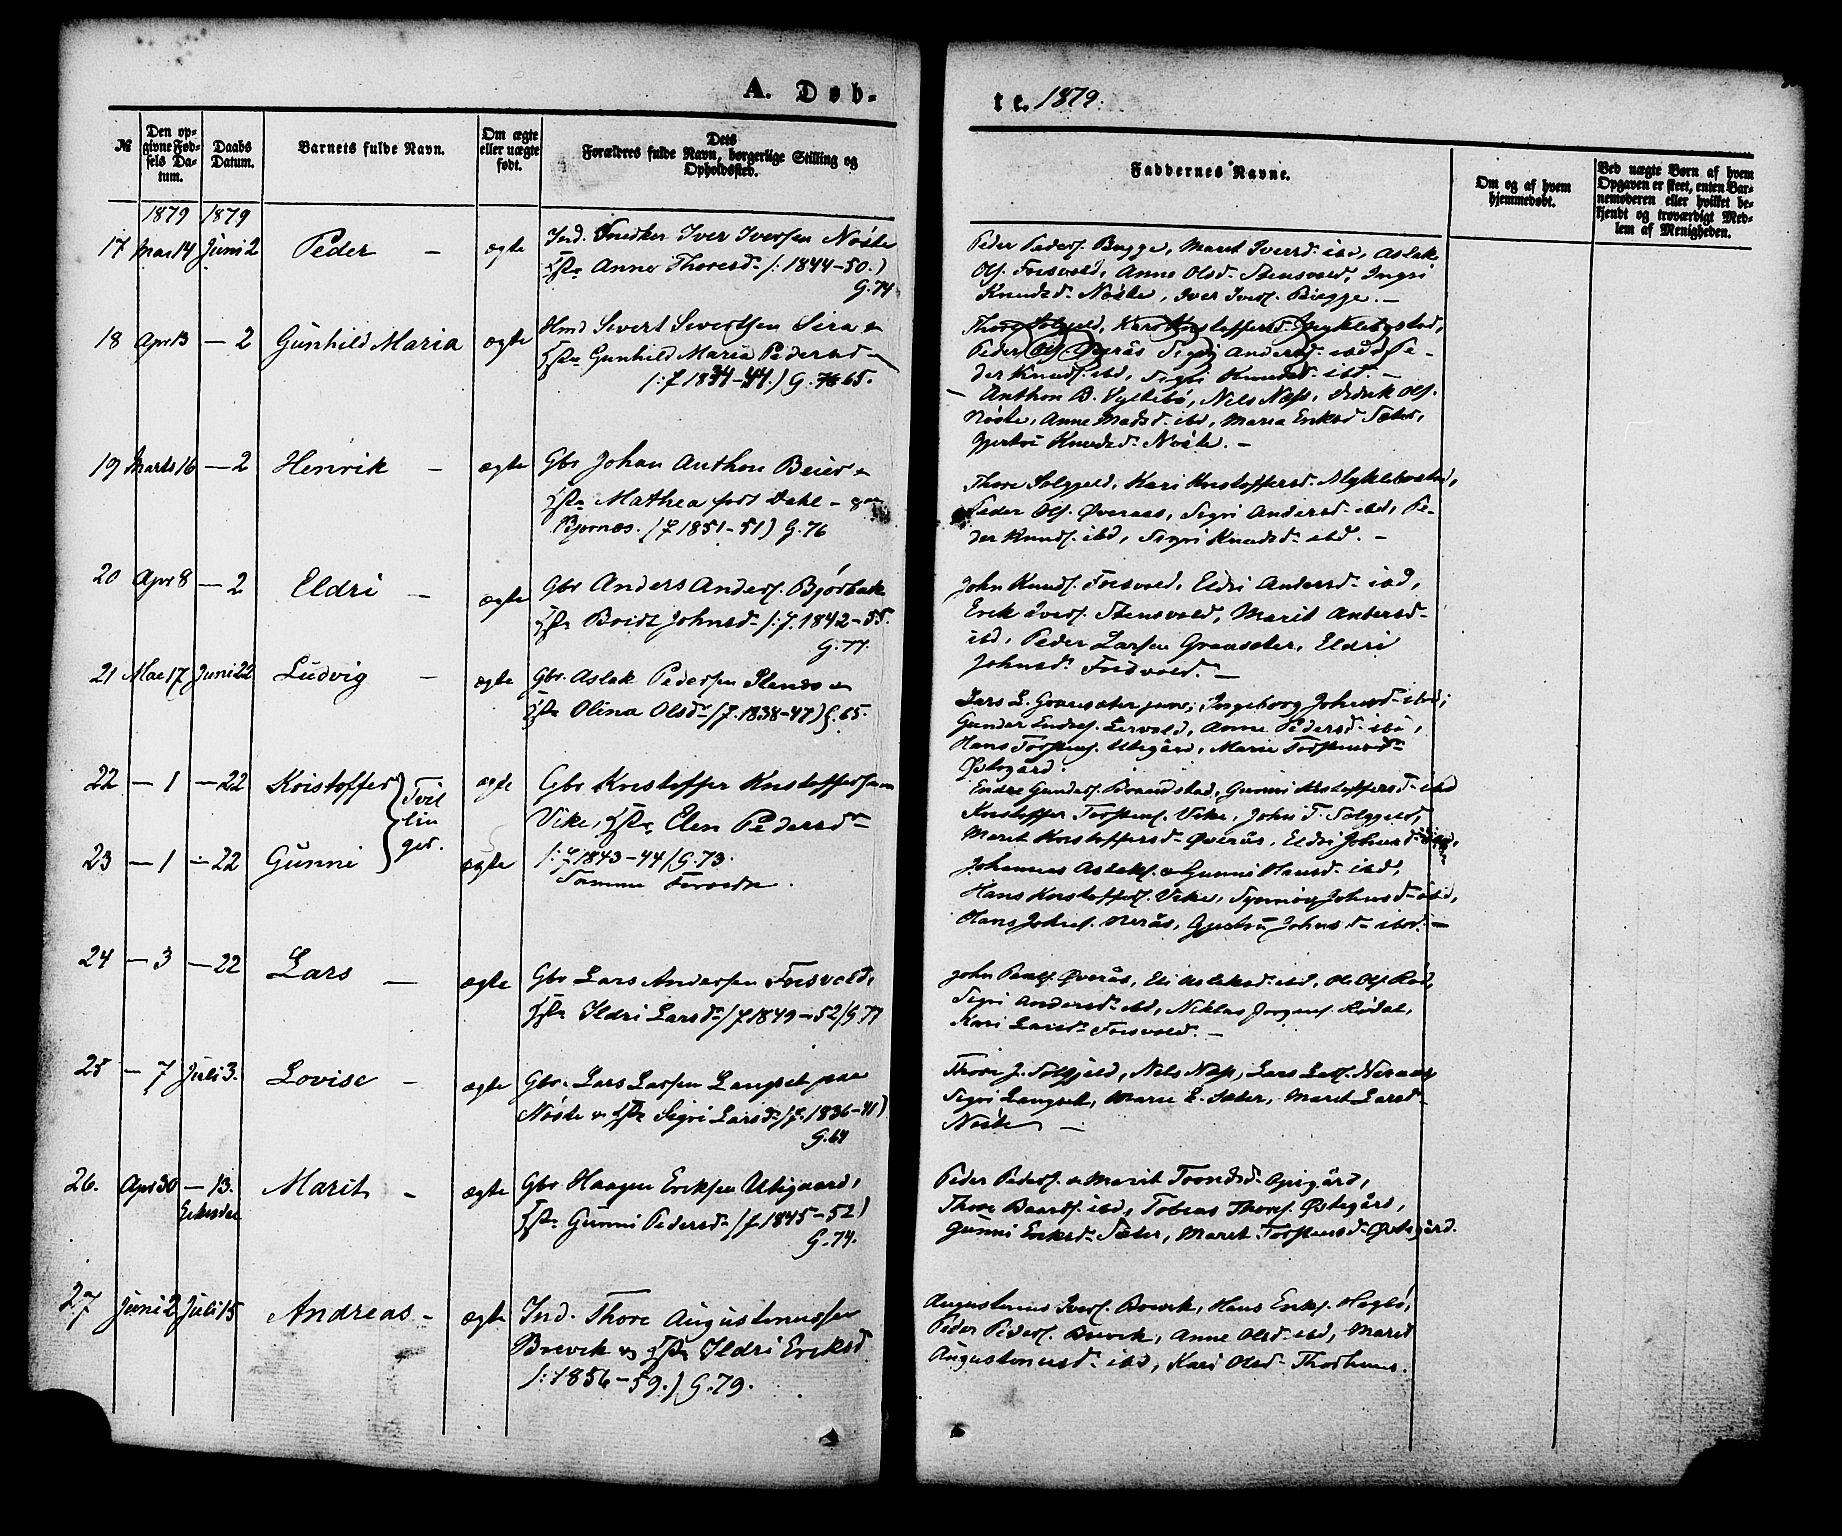 A. Døb-
te. 1879.
№
Den op-
givne Fød-
sels Da-
tum.
Daabs
Datum.
Barnets fulde Navn.
Om ægte
eller uægte
født.
Dets
Forældres fulde Navn, borgerlige Stilling og
Opholdssted.
Faddernes Navne.
Om og af hvem
hjemmedøbt.
Ved uægte Børn af hvem
Opgaven er skeet, enten Bar-
nemoderen eller hvilket be-
kjendt og troværdigt Med-
lem af Menigheden.
1879 1879
17 Mai 14 Juni 2 Peder – ægte Ind. Snedker Iver Iversen Nöste
Hstr Anne Thoresd. /: 1844–50 :/
G. 74
Peder Peders. Bugge, Marit Iversd. ibd, Aslak
Ols. Forsvold, Anne Olsd. Stensvold, Ingri
Knudsd. Nöste, Iver Ivers. Bugge. –
18 Apr 13 – 2 Gunhild Maria ægte Hmd Sivert Sivertsen Sira &
Hstr Gunhild Maria Pedersd
/: f 1834–44 :/ G. 65.
Thore Solgjeld, Kari Kristoffersd. Myklebostad,
Peder Ols. Øverås Sigri Andersd. ibd Pe-
der Knuds. ibd, Sigri Knudsd. ibd. –
– Anthon B. Syltebö, Nils Næss, Ols.
Nöste, Anne Madsd. ibd, Maria Eriksd Sæter,
Gjertrú Knudsd. Nöste. –
19 Marts 16 – 2 Henrik – ægte Gbr Johan Anthon Beier &
Hstr Mathea født Dahl –
/f 1851–51/ G. 76
Thore Solgjeld, Kari Kristoffersd. Myklebostad,
Peder Ols. Øveraas, Sigri Andersd. ibd, Pe-
der Knuds. ibd, Sigri Knudsd. ibd. –
20 Apr 8 – 2 Eldri – ægte Gbr Anders Anders. Bjørbak
Hstr Beret Johnsd. /: f. 1842–55.
G. 77.
John Knuds. Forsvold, Eldri Andersd. ibd,
Erik Ivers. Stensvold, Marit Andersd.
ibd, Peder Larsen Granseter, Eldri
Johnsd. Forsvold. –
21 Mai 17 Juni 22 Ludvig – ægte Gbr. Aslak Pedersen Stenes &
Hstr Olina Olsd. /f. 1838–47/ G. 65.
Lars L. Granseter, Ingeborg Johnsd. ibd,
Gunder Endres. Lervold, Anne Pedersd. ibd,
Hans Torstens. Utigård, Marie Torstensd.
Østegård.
22 – 1 – 22 Kristoffer Tvil
lin
ger.
ægte Gbr Kristoffer Kristoffersen
Vike, Hstr Elen Pedersd.
/: f 1843–44/ G. 73.
Endre Gunders. Brandstad, Gunni Kristoffersd. ibd
Kristoffer Torstens. Vike, John T. Solgjeld,
Marit Kristoffersd. Øverås, Eldri Johnsd. ibd,
23 – 1 – 22 Gunni ægte
Samme Forældre.
Johannes Aslaks. & Gunni Hansd. ibd,
Hans Kristoffers. Vike, Synnöv Johnsd. ibd,
Hans Johns. Nerås, Gjertrú Johnsd. ibd. –
24 – 3 – 22 Lars – ægte Gbr Lars Andersen Forsvold,
Hstr Ildri Larsd. /f 1849–52/ G. 77
John Øverås, Eli Aslaksd. ibd, Ole Ols. Rød,
Sigri Andersd. ibd, Niklas Jörgens. Rødal,
Kari Larsd. Forsvold. –
25 – 7 Juli 3. Lovise – ægte Gbr. Lars Larsen Langset paa
Nöste & Hstr Sigri Larsd. /f. 1836–41/
G. 64
Thore J. Solgjeld, Nils Næss, Lars Lars. Neraas
Sigri Langset, Marie E. Sæter, Marit Larsd.
Nöste –
26. Apr 30 – 13. Marit – ægte Gbr Haagen Eriksen Utigaard,
Hstr Gunni Pedersd. /f 1845–52/
G. 74.
Peder Peders. & Marit Trondsd. Opigård,
Thore Baards. ibd, Tobias Thores. Østegård,
Gunni Eriksd. Sæter, Marit Torstensd. Østegård.
27 Juni 2 Juli 15 Andreas – ægte Ind. Thore Augustinussen
Brevik & Hstr Ildri Eriksd
/: 1856–59 :/ G. 79.
Augustinus Ivers. Brevik, Hans Eriks. Hagbö,
Peder Peders. Brevik, Anne Olsd. ibd, Marit
Augustinusd. ibd, Kari Olsd.